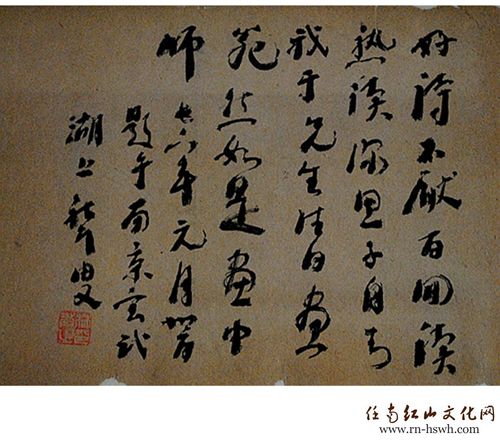 好诗不厭百回读
熟读深思子自知
我于先生自画
然如是画中
师 年元月
题于南京玄武
湖上
任南红山文化网
www.rn-hswh.com